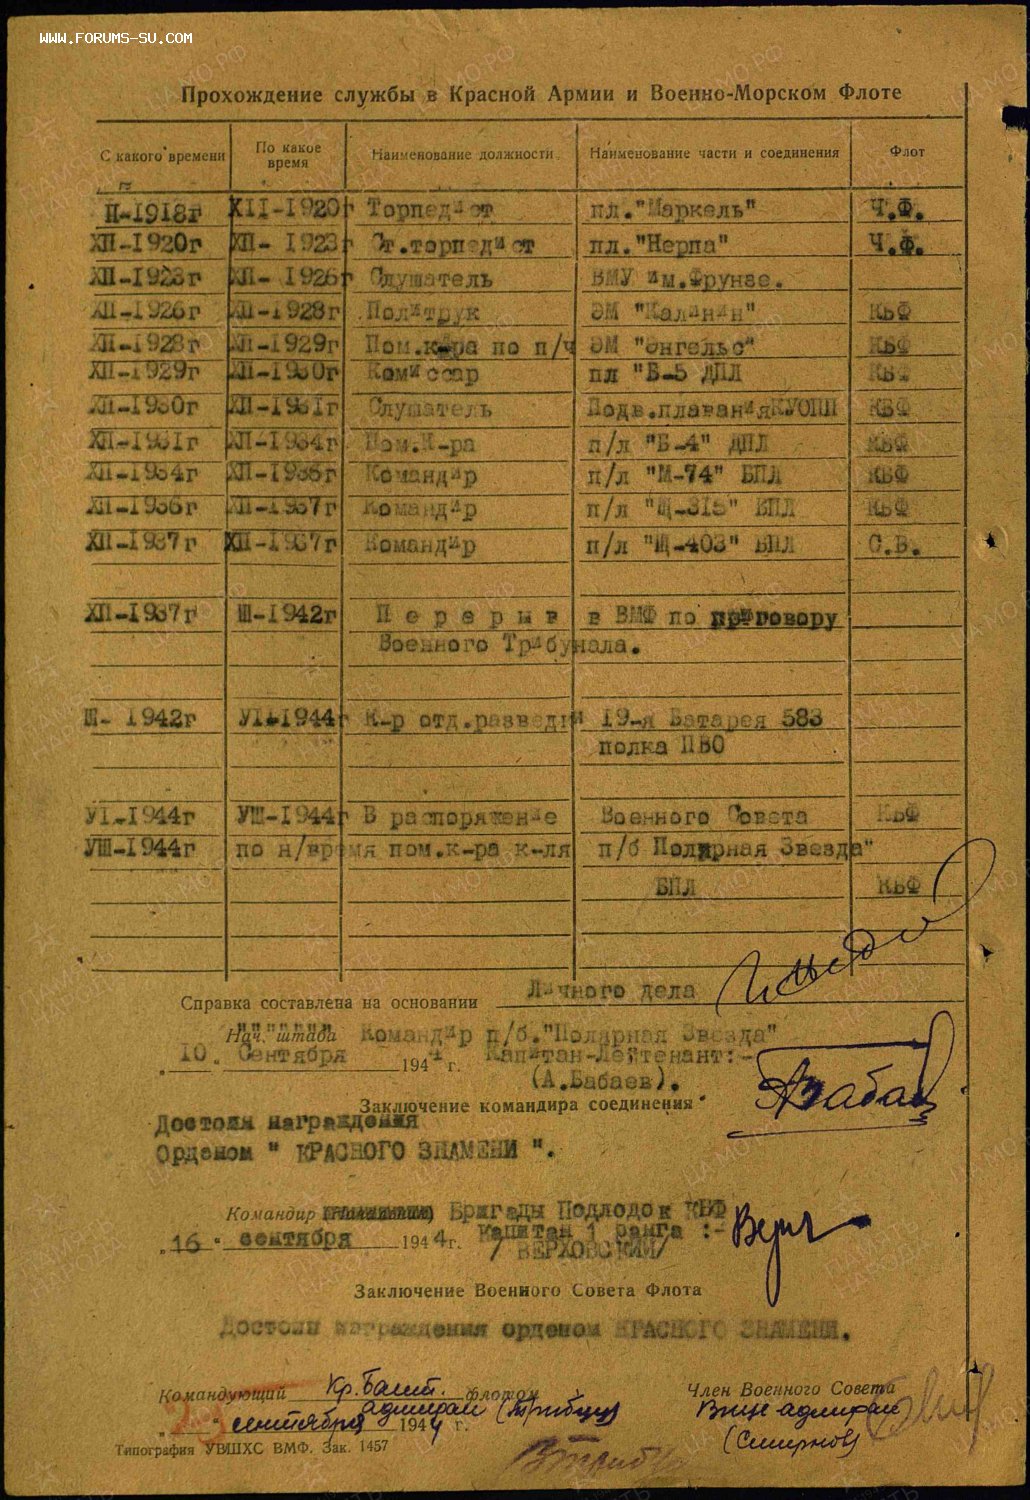 WWW.FORUMS-SU.COM
Прохождение службы в Красной Армии и Военно-Морском Флоте
С какого времени По какое время Наименование должности Наименование части и соединения Флот
П-1918г ХII-1920г Торпедист пл."Маркель" Ч.Ф.
ХП-1920г ХП- 1923г Ст.торпедист пл."Нерпа" Ч.Ф.
ХП-1923г ХП- 1926г Слушатель ВМУ им.Фрунзе.
ХП-1926г ХП-1928г Политрук ЭМ "Калинин" КБФ
ХП-1928г ХП-1929г Пом.к-ра по п/ч ЭМ "Энгельс" КБФ
ХП-1929г ХП-1930г Комиссар пл "Б-5 ДПЛ КБФ
ХП-1930г ХП-1931г Слушатель Подв.плавания КУОПП КБФ
ХП-1931г ХП-1934г Пом.К-ра п/л "Б-4" ДПЛ КБФ
ХП-1934г ХП-1936г Командир п/л "М-74" БПЛ КБФ
ХП-1936г ХП-1937г Командир п/л "Щ-315" БПЛ КБФ
ХП-1937г ХП-1937г Командир п/л "Щ-403" БПЛ С.В.
ХП-1937г Ш-1942г П е р е р ы в в ВМФ по приговору
Военного Трибунала.
Ш- 1942г УI-1944г К-р отд.разведки 19-я Батарея 583
полка ПВО
УI-1944г УШ-1944г В распоряжение Военного Совета КБФ
УШ-1944г по н/время пом.к-ра к-ля п/б Полярная Звезда"
БПЛ КБФ
Справка составлена на основании Личного дела
Нач. штаба Командир п/б."Полярная Звезда"
"10" Сентября 1944 г. Капитан-Лейтенант:-
(А.Бабаев).
Заключение командира соединения
Достоин награждения
Орденом " КРАСНОГО ЗНАМЕНИ ".
Командир Бригады Подлодок КБФ
Капитан 1 ранга :-
"16" сентября 1944г. / ВЕРХОВСКИЙ/
Заключение Военного Совета Флота
Достоин награждения орденом КРАСНОГО ЗНАМЕНИ.
Командующий Кр.Балт. флотом Член Военного Совета
адмирал (Трибуц) Вице адмирал
сентября 1944 г. (Смирнов)
Типография УВШХС ВМФ. Зак. 1457